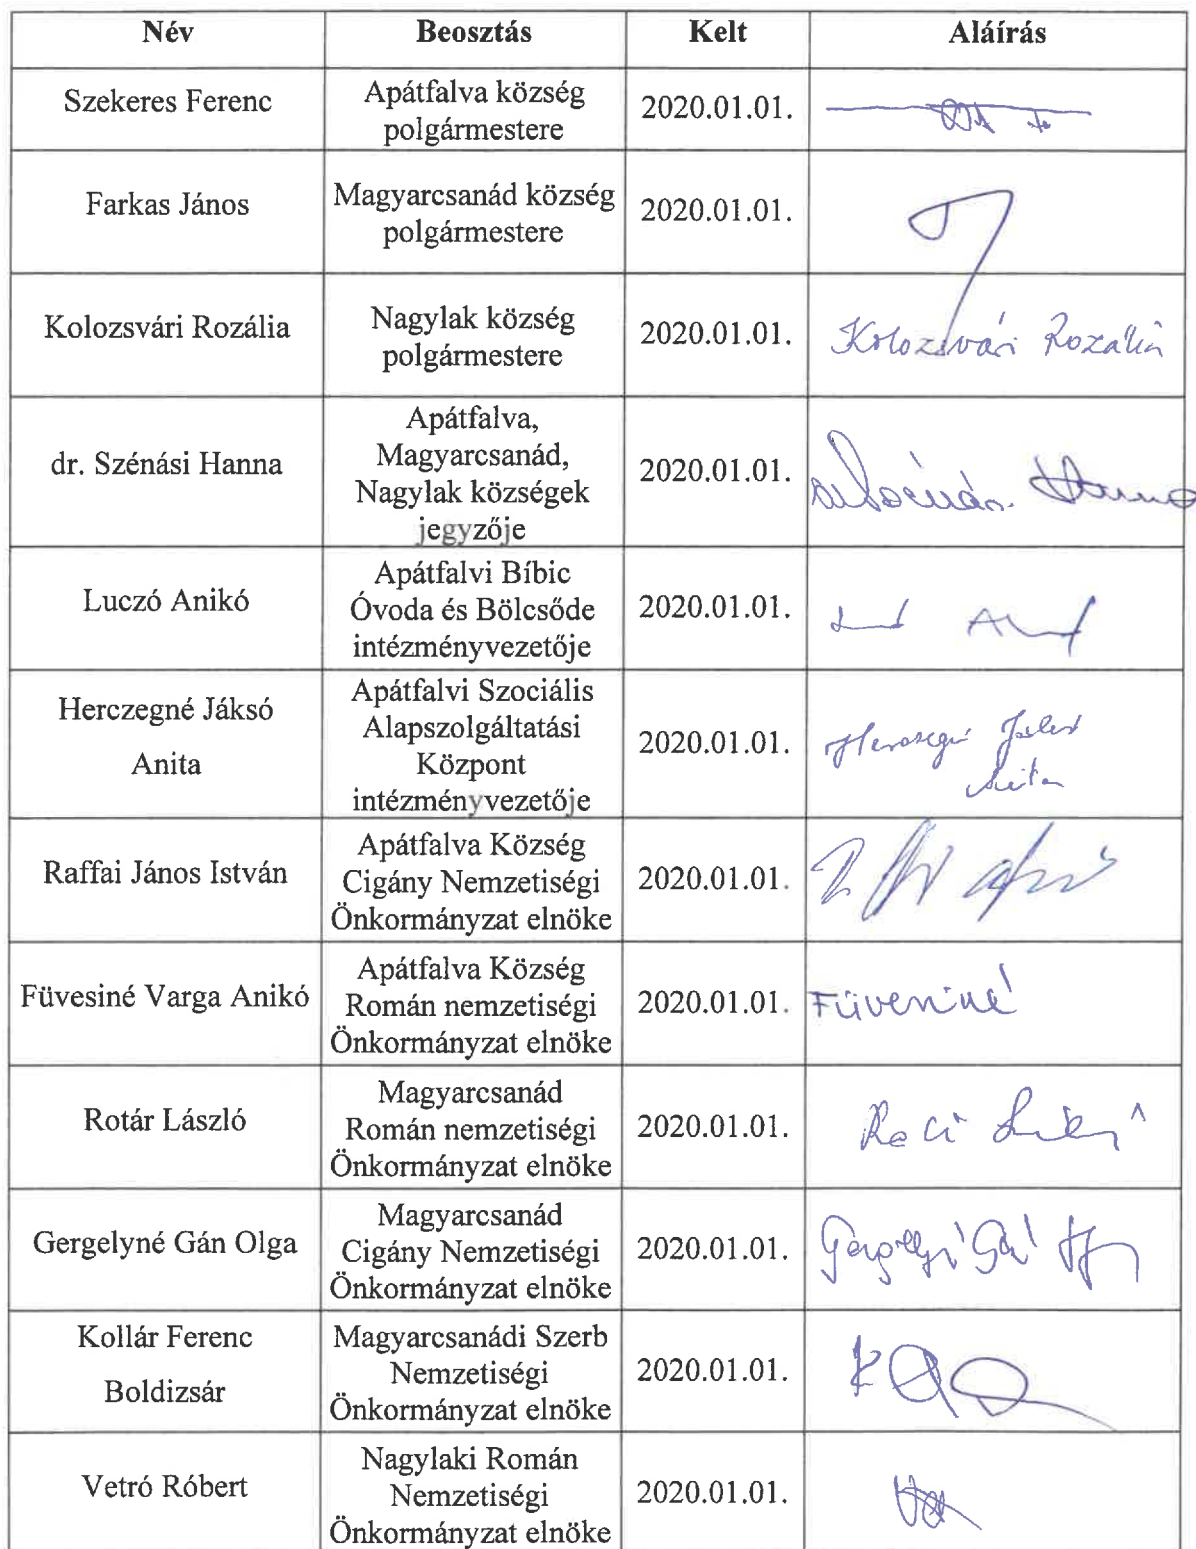 Név Beosztás Kelt Aláírás
Szekeres Ferenc
Apátfalva község
polgármestere
2020.01.01.
Farkas János
Magyarcsanád község
polgármestere
2020.01.01.
Kolozsvári Rozália
Nagylak község
polgármestere
2020.01.01.
Kolozsvári Rozália
dr. Szénási Hanna
Apátfalva,
Magyarcsanád,
Nagylak községek
jegyzője
2020.01.01.
Luczó Anikó
Apátfalvi Bíbic
Óvoda és Bölcsőde
intézményvezetője
2020.01.01.
Herczegné Jáksó
Anita
Apátfalvi Szociális
Alapszolgáltatási
Központ
intézményvezetője
2020.01.01.
Raffai János István
Apátfalva Község
Cigány Nemzetiségi
Önkormányzat elnöke
2020.01.01.
Füvesiné Varga Anikó
Apátfalva Község
Román nemzetiségi
Önkormányzat elnöke
2020.01.01.
Füvesiné
Rotár László
Magyarcsanád
Román nemzetiségi
Önkormányzat elnöke
2020.01.01.
Gergelyné Gán Olga
Magyarcsanád
Cigány Nemzetiségi
Önkormányzat elnöke
2020.01.01.
Kollár Ferenc
Boldizsár
Magyarcsanádi Szerb
Nemzetiségi
Önkormányzat elnöke
2020.01.01.
Vetró Róbert
Nagylaki Román
Nemzetiségi
Önkormányzat elnöke
2020.01.01.